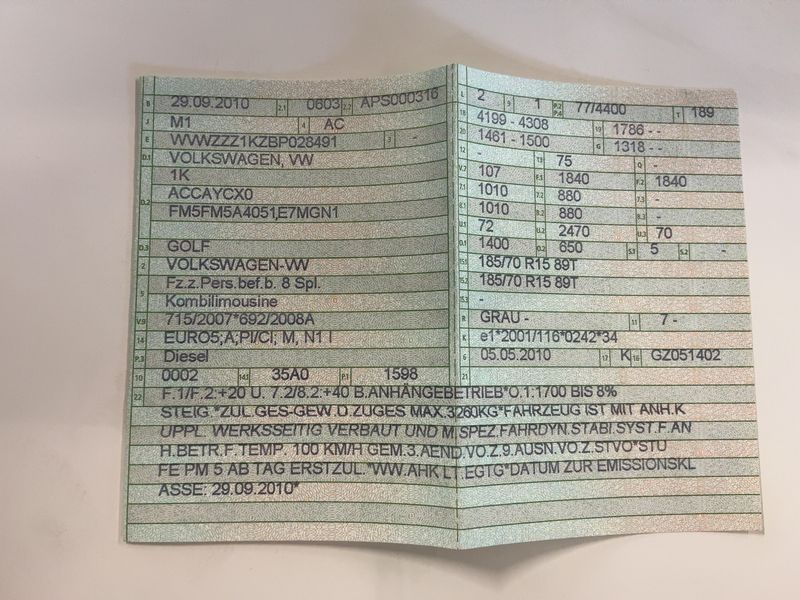 B 29.09.2010 2.1 0603 2.2 APS000316
J M1 4 AC
E WVWZZZ1KZBP028491 3 -
D.1 VOLKSWAGEN, VW
1K
D.2 ACCAYCX0
FM5FM5A4051,E7MGN1
D.3 GOLF
2 VOLKSWAGEN-VW
5 Fz.z.Pers.bef.b. 8 Spl.
Kombilimousine
V.9 715/2007*692/2008A
14 EURO5;A;PI/CI; M, N1 I
P.3 Diesel
10 0002 14.1 35A0 P.1 1598
L 2 9 1 P.2 P.4 77/4400 T 189
18 4199 - 4308 19 1786 - -
20 1461 - 1500 G 1318 - -
12 - 13 75 Q -
V.7 107 F.1 1840 F.2 1840
7.1 1010 7.2 880 7.3 -
8.1 1010 8.2 880 8.3 -
U.1 72 U.2 2470 U.3 70
O.1 1400 O.2 650 S.1 5 S.2 -
15.1 185/70 R15 89T
15.2 185/70 R15 89T
15.3 -
R GRAU - 11 7 -
K e1*2001/116*0242*34
6 05.05.2010 17 K 16 GZ051402
21
22 F.1/F.2:+20 U. 7.2/8.2:+40 B.ANHÄNGEBETRIEB*O.1:1700 BIS 8%
STEIG.*ZUL.GES-GEW.D.ZUGES MAX.3260KG*FAHRZEUG IST MIT ANH.K
UPPL. WERKSSEITIG VERBAUT UND M.SPEZ.FAHRDYN.STABI.SYST.F.AN
H.BETR.F.TEMP. 100 KM/H GEM.3.AEND.VO.Z.9.AUSN.VO.Z.STVO*STU
FE PM 5 AB TAG ERSTZUL.*WW.AHK LT.EGTG*DATUM ZUR EMISSIONSKL
ASSE: 29.09.2010*